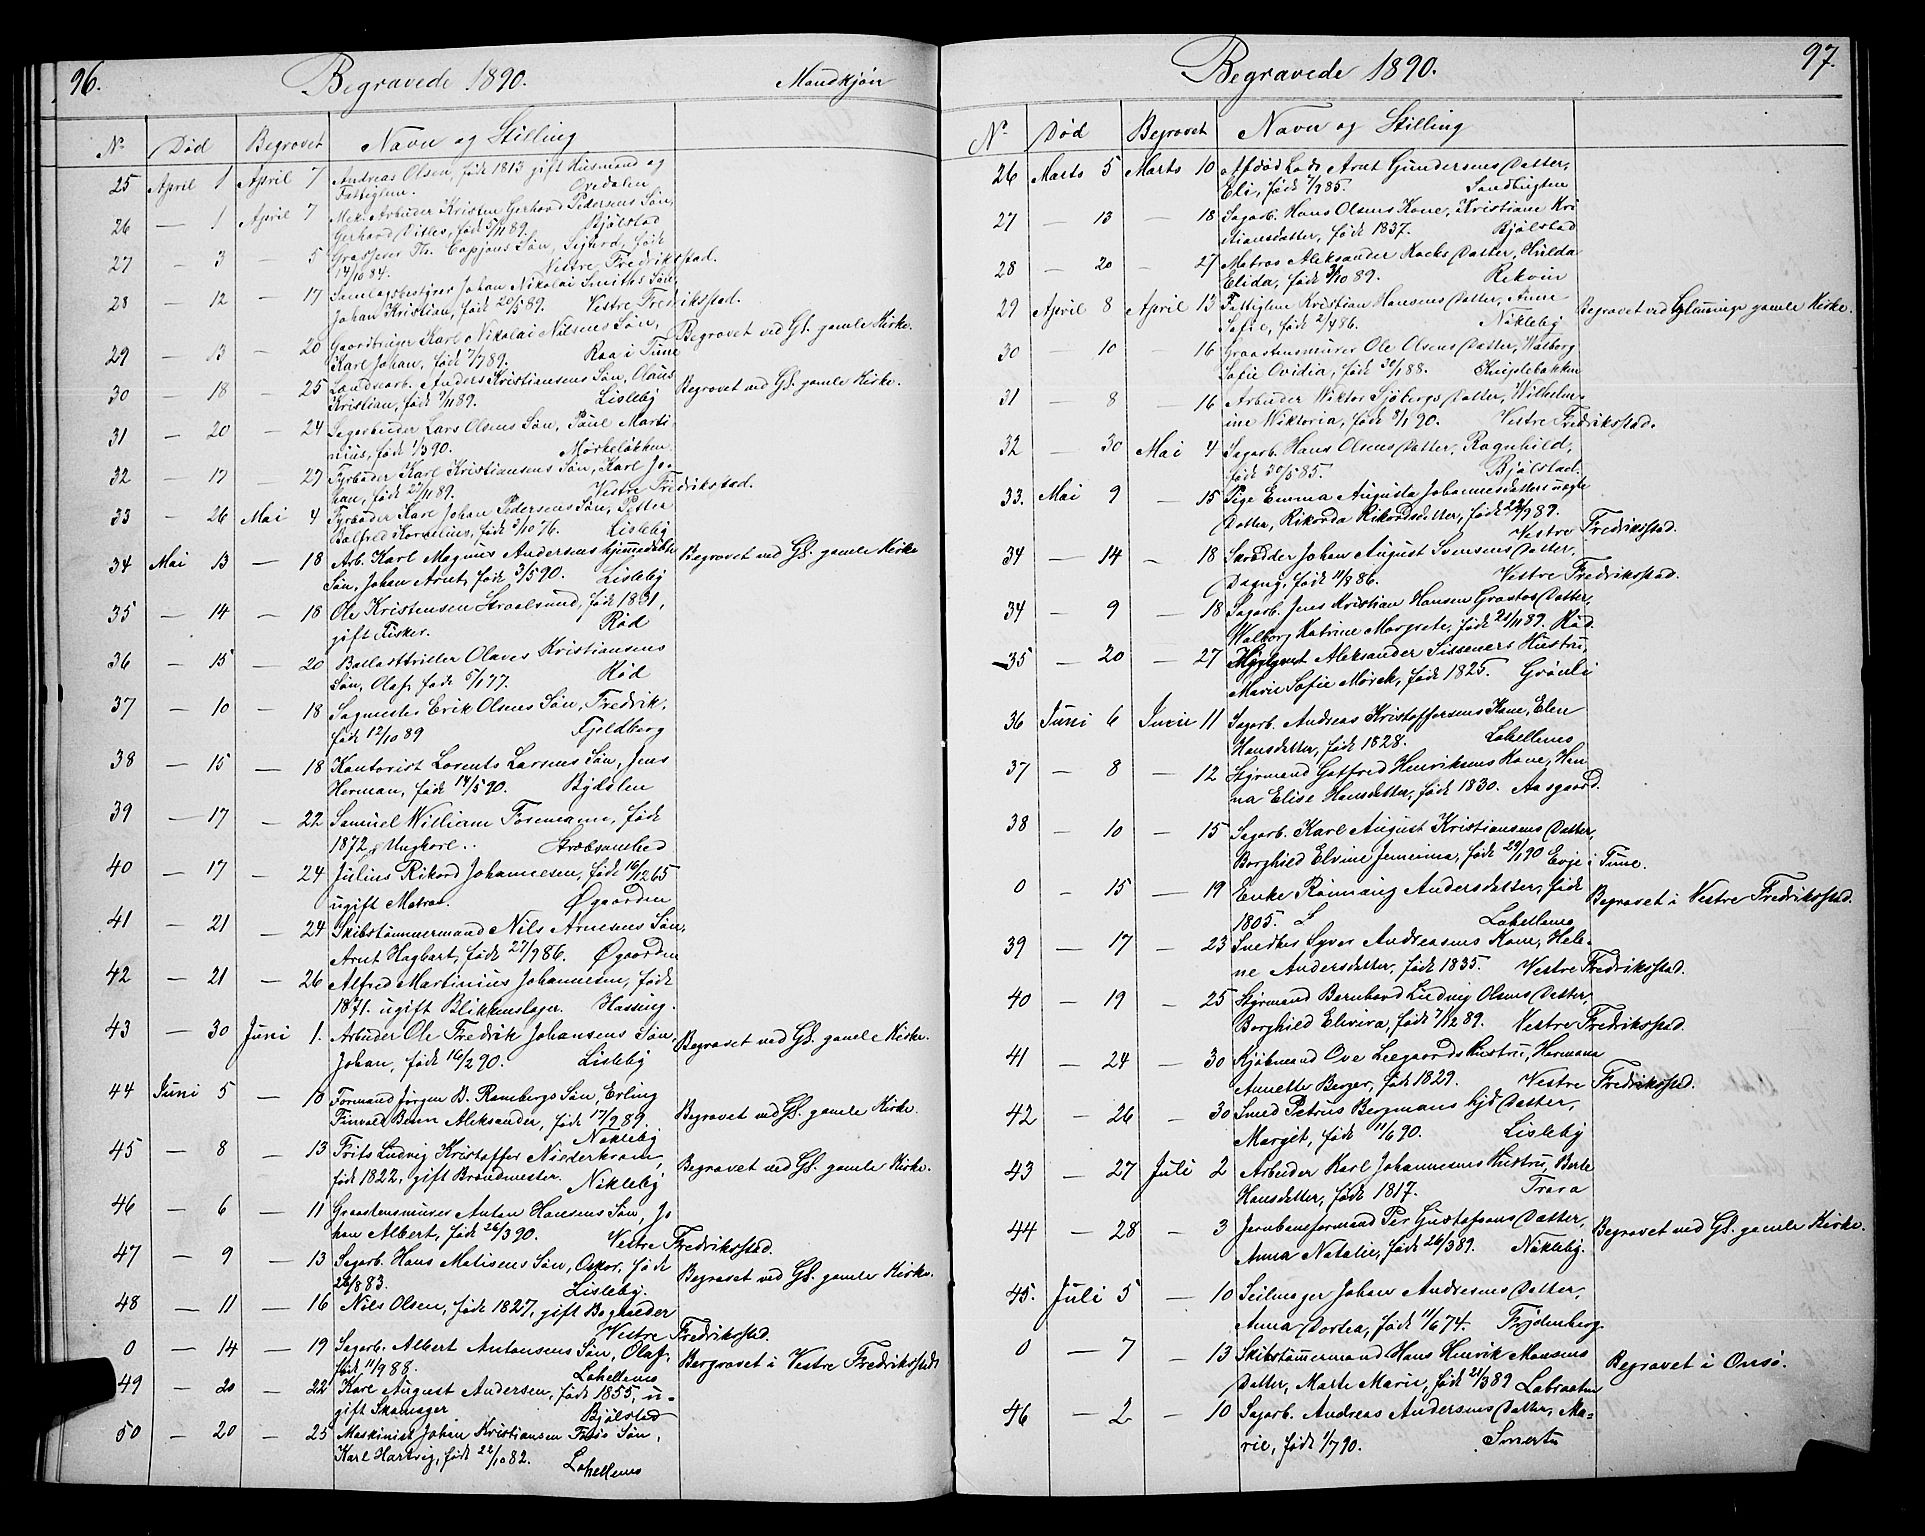 96.
Begravede 1890.
Mandkjøn
No Død Begravet Navn og Stilling
25 April 1 April 7 Andreas Olsen, født 1813 gift Husmand og
Fattiglem.
26 — 1 April 7 Mek. Arbeider Kristen Gerhard Pedersens Søn,
Gerhard Ditlef, født 5/11 89. Bjølstad
27 — 3 — 5 Th. Søn, Sigurd, født
14/10 84. Vestre Fredrikstad.
28 — 12 — 17 Samlagsbestyrer Johan Nikolai Smiths Søn,
Johan Kristian, født 20/5 89. Vestre Fredriksstad.
29 — 13 — 20 Gaardbruger Karl Nikolai Nilsens Søn, Begravet ved Gl. gamle Kirke.
Karl Johan, født 7/7 89. Raa i Tune
30 — 18 — 25 Anders Kristiansens Søn, Olaus Begravet ved Gl. gamle Kirke.
Kristian, født 9/11 89. Lisleby
31 — 20 — 24 Sagarbeider Lars Olsens Søn, Paul Marti-
nius, født 1/3 90. Mørkeløkken
32 — 17 — 27 Fyrbøder Karl Kristiansens Søn, Karl Jo-
han, født 27/11 89. Vestre Fredrikstad.
33 — 26 Mai 4 Fyrbøder Karl Johan Pedersens Søn, Petter
Valfred Kornelius, født 3/10 76. Lisleby
34 Mai 13 — 18 Arb. Karl Magnus Andersens hjemmedøbte Begravet ved Gl. gamle Kirke
Søn, Johan Arnt, født 3/5 90. Lisleby
35 — 14 — 18 Ole Kristensen Straalsund, født 1831,
gift Fisker. Rød
36 — 15 — 20 Ballasttriller Olaves Kristiansens
Søn, Olaf, født 5/1 77. Rød
37 — 10 — 18 Sagmester Erik Olsens Søn, Fredrik,
født 12/10 89 Fjeldberg
38 — 15 — 18 Kontorist Lorents Larsens Søn, Jens
Herman, født 14/5 90. Bydalen
39 — 17 — 22 Samuel William Foremann, født
1872, Ungkarl.. Stræbsomhed
40 — 17 — 24 Julius Rikard Johannesen, født 16/12 65
ugift Matros. Øgaarden
41 — 21 — 24 Skibstømmermand Nils Arnesens Søn,
Arnt Hagbart, født 27/9 86. Øgaarden
42 — 21 — 26 Alfred Martinius Johannesen, født
1871. ugift Blikkenslager. Hassing.
43 — 30 Juni 1. Arbeider Ole Fredrik Johansens Søn, Begravet ved Gl. gamle Kirke.
Johan, født 16/2 90. Lisleby
44 Juni 5 — 10 Formand Jørgen B. Rambergs Søn, Erling
Finvald Bernn Aleksander, født 17/9 89. Begravet ved Gl. gamle Kirke.
Nøkleby
45 — 8 — 13 Frits Ludvig Kristoffer Niederkrom, Begravet ved Gl. gamle Kirke.
født 1822, gift Brandmester. Nøkleby
46 — 6 — 11 Graastensmurer Anton Hansens Søn, Jo
han Albert, født 26/3 90. Vestre Fredriksstad.
47 — 9 — 13 Sagarb. Hans Matisens Søn, Oskar, født Begravet ved Gl. gamle Kirke.
26/8 83. Lisleby.
48 — 11 — 16 Nils Olsen, født 1827, gift Bogbinder
Vestre Fredriksstad.
0 — 14 — 19 Sagarb. Albert Antonsens Søn, Olaf, Bergravet i Vestre Fredriksstad
født 11/9 88. Lahellemo
49 — 20 — 22 Karl August Andersen, født 1855, u-
gift Skomager Bjølstad
50 — 20 — 25 Maskinist Johan Kristiansen Søn,
Karl Hartvig, født 22/10 82. Lahellemo
97.
Begravede 1890.
No Død Begravet Navn og Stilling
26 Marts 5 Marts 10 Afdød Lods Arnt Gundersens Datter,
Eli, født 7/9 85. Sandbugten
27 — 13 — 18 Sagarb. Hans Olsens Kone, Kristiane Kri
stiansdatter, født 1837. Bjølstad
28 — 20 — 27 Matros Aleksander Kocks Datter, Hulda
Elida, født 3/10 89. Rekvin
29 April 8 April 13 Fattiglem Kristian Hansens Datter, Anne Begravet ved Glemminge gamle Kirke.
Sofie, født 2/4 86. Nøkleby
30 — 10 — 16 Graastensmurer Ole Olsens Datter, Valborg
Sofie Ovidia, født 30/1 88. Knipdebakken
31 — 8 — 16 Arbeider Viktor Sjøbergs Datter, Wilhelm-
ine Wiktoria, født 8/1 90. Vestre Fredrikstad.
32 — 30 Mai 4 Sagarb. Hans Olsens Datter, Ragnhild,
født 30/5 85. Bjølstad.
33. Mai 9 — 15 Pige Emma Augusta Johannesdatters uægte
Datter, Rikorda Rikordsdatter, født 22/9 89.
Vestre Fredriksstad.
34 — 14 — 18 Skrædder Johan August Svensens Datter,
Dagny, født 11/8 86. Vestre Fredriksstad.
34 — 9 — 18 Sagarb. Jens Kristian Hansen Grastos Datter,
Walborg Katrine Margrete, født 21/11 89. Rød.
35 — 20 — 27 Aleksander Sisseners Hustru,
Marie Sofie Mørch, født 1825. Grønli
36 Juni 6 Juni 11 Sagarb. Andreas Kristoffersens Kone, Elen
Hansdatter, født 1828. Lahellemo
37 — 8 — 12 Styrmand Gotfred Henriksens Kone, Han
na Elise Hansdatter, født 1830. Aasgaard.
38 — 10 — 15 Sagarb. Karl August Kristiansens Datter,
Borghild Elvine Jemima, født 29/1 90 Evje i Tune.
0 — 15 — 19 Enke Rønnaug Andersdatter, født Begravet i Vestre Fredriksstad.
1805. Lahellemo
39 — 17 — 23 Snedker Syver Andreasens Kone, Hele-
ne Andersdatter, født 1835. Vestre Fredriksstad.
40 — 19 — 25 Styrmand Bernhard Ludvig Olsens Datter,
Borghild Elvira, født 7/12 89. Vestre Fredriksstad.
41 — 24 — 30 Kjøbmand Ove Leegaards Hustru, Hermana
Annette Berger, født 1829. Vestre Fredriksstad.
42 — 26 — 30 Smed Petrus Bergmans hjd. Datter,
Margit, født 11/6 90. Lisleby
43 — 27 Juli 2 Arbeider Karl Johannesens Hustru, Berte
Hansdatter, født 1817. Trara
44 — 28 — 3 Jernbaneformand Per Gustafsons Datter, Begravet ved Gl. gamle Kirke.
Anna Natalie, født 26/3 89. Nøkleby.
45. Juli 5 — 10 Seilmager Johan Andresens Datter,
Anna Dortea, født 11/6 74. Frydenberg
0 — 7 — 13 Skibstømmermand Hans Henrik Monsens Begravet i Onsø.
Datter, Marte Marie, født 21/3 89 Labraaten
46 — 2 — 10 Sagarb. Andreas Andersens Datter, Ma-
rie, født 1/7 90. Smertu